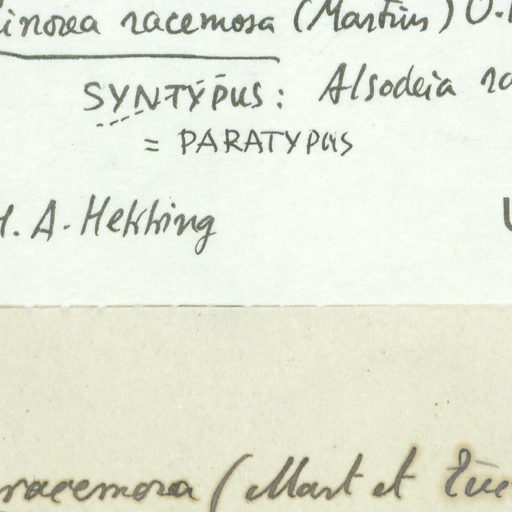 inorea racemosa (Martius) O.
SYNTYPUS: Alsodeia ra
= PARATYPUS
H. A. Hekking U
racemosa (Mart et Zuc